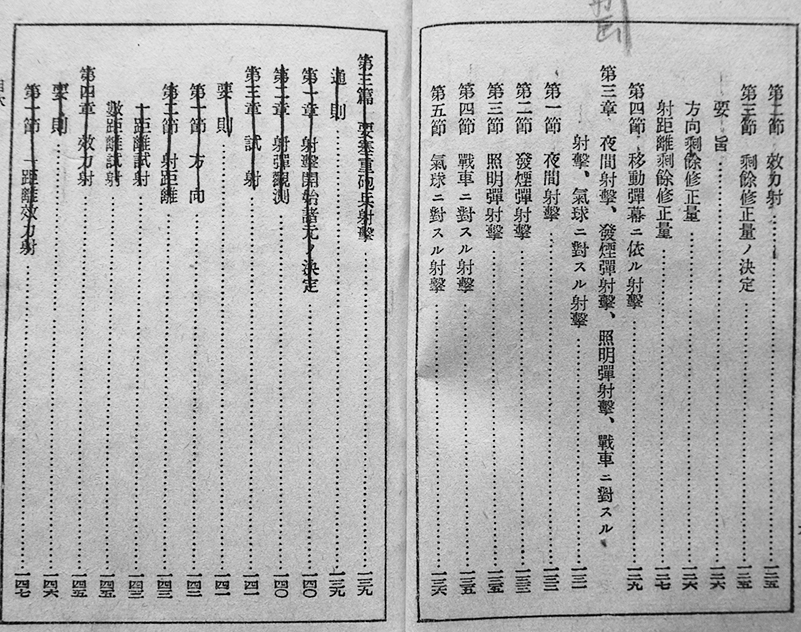 第二節 效力射 一二五
第三節 剩餘修正量ノ決定 一二五
要旨 一二六
方向剩餘修正量 一二六
射距離剩餘修正量 一二七
第四節 移動彈幕ニ依ル射擊 一二九
第三章 夜間射擊、發煙彈射擊、照明彈射擊、戰車ニ對スル
射擊、氣球ニ對スル射擊 一三一
第一節 夜間射擊 一三一
第二節 發煙彈射擊 一三三
第三節 照明彈射擊 一三五
第四節 戰車ニ對スル射擊 一三五
第五節 氣球ニ對スル射擊 一三六
第三篇 要塞重砲兵射擊 一三九
通則 一三九
第一章 射擊開始諸元ノ決定 一四〇
第二章 射彈觀測 一四〇
第三章 試射 一四一
要則 一四一
第一節 方向 一四二
第二節 射距離 一四三
一距離試射 一四三
數距離試射 一四五
第四章 效力射 一四五
要則 一四六
第一節 一距離效力射 一四七